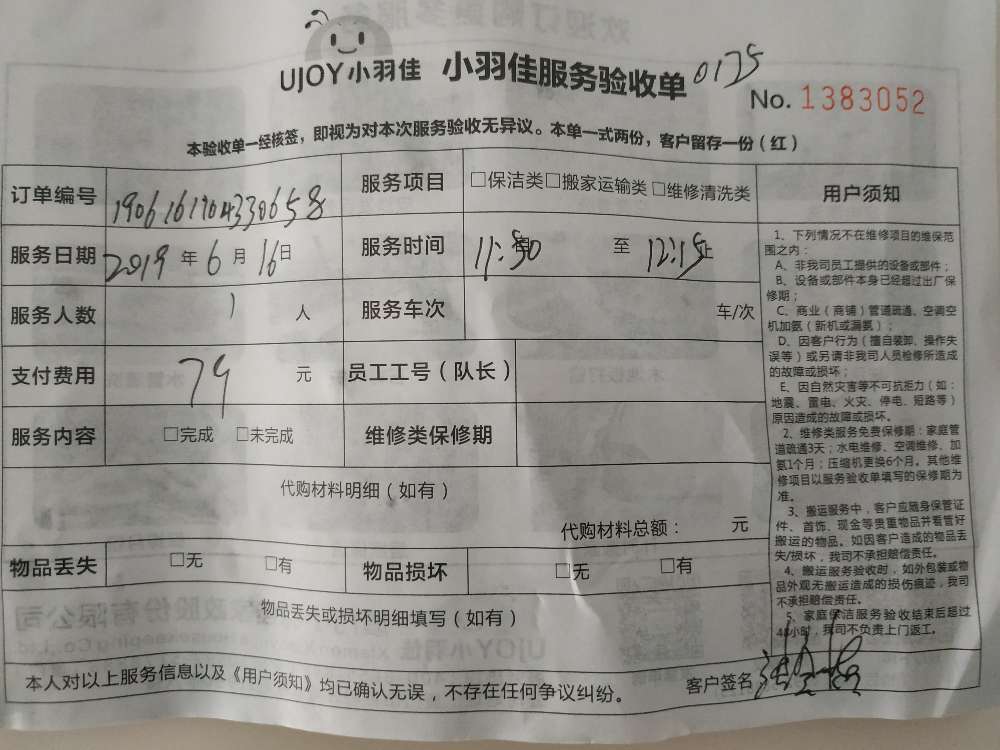 UJOY小羽佳 小羽佳服务验收单 0175
No. 1383052
本验收单一经核签，即视为对本次服务验收无异议。本单一式两份，客户留存一份（红）
订单编号 1906161704330658 服务项目 □保洁类□搬家运输类 □维修清洗类
服务日期 2019 年 6 月 16 日 服务时间 11:30 至 12:15 止
服务人数 1 人 服务车次 车/次
支付费用 79 元 员工工号（队长）
服务内容 □完成 □未完成 维修类保修期
代购材料明细（如有）
代购材料总额： 元
物品丢失 □无 □有 物品损坏 □无 □有
物品丢失或损坏明细填写（如有）
本人对以上服务信息以及《用户须知》均已确认无误，不存在任何争议纠纷。 客户签名
用户须知
1、下列情况不在维修项目的维保范
围之内：
A、非我司员工提供的设备或部件；
B、设备或部件本身已经超过出厂保
修期；
C、商业（商铺）管道疏通、空调空
机加氨（新机或漏氨）；
D、因客户行为（擅自装卸、操作失
误等）或另请非我司人员检修所造成
的故障或损坏；
E、因自然灾害等不可抗拒力（如：
地震、雷电、火灾、停电、短路等）
原因造成的故障或损坏。
2、维修类服务免费保修期：家庭管
道疏通3天；水电维修、空调维修、加
氨1个月；压缩机更换6个月。其他维
修项目以服务验收单填写的保修期为
准。
3、搬运服务中，客户应随身保管证
件、首饰、现金等贵重物品并看管好
搬运的物品。如因客户造成的物品丢
失/损坏，我司不承担赔偿责任。
4、搬运服务验收时，如外包装或物
品外观无搬运造成的损伤痕迹，我司
不承担赔偿责任。
5、家庭保洁服务验收结束后超过
48小时，我司不负责上门返工。